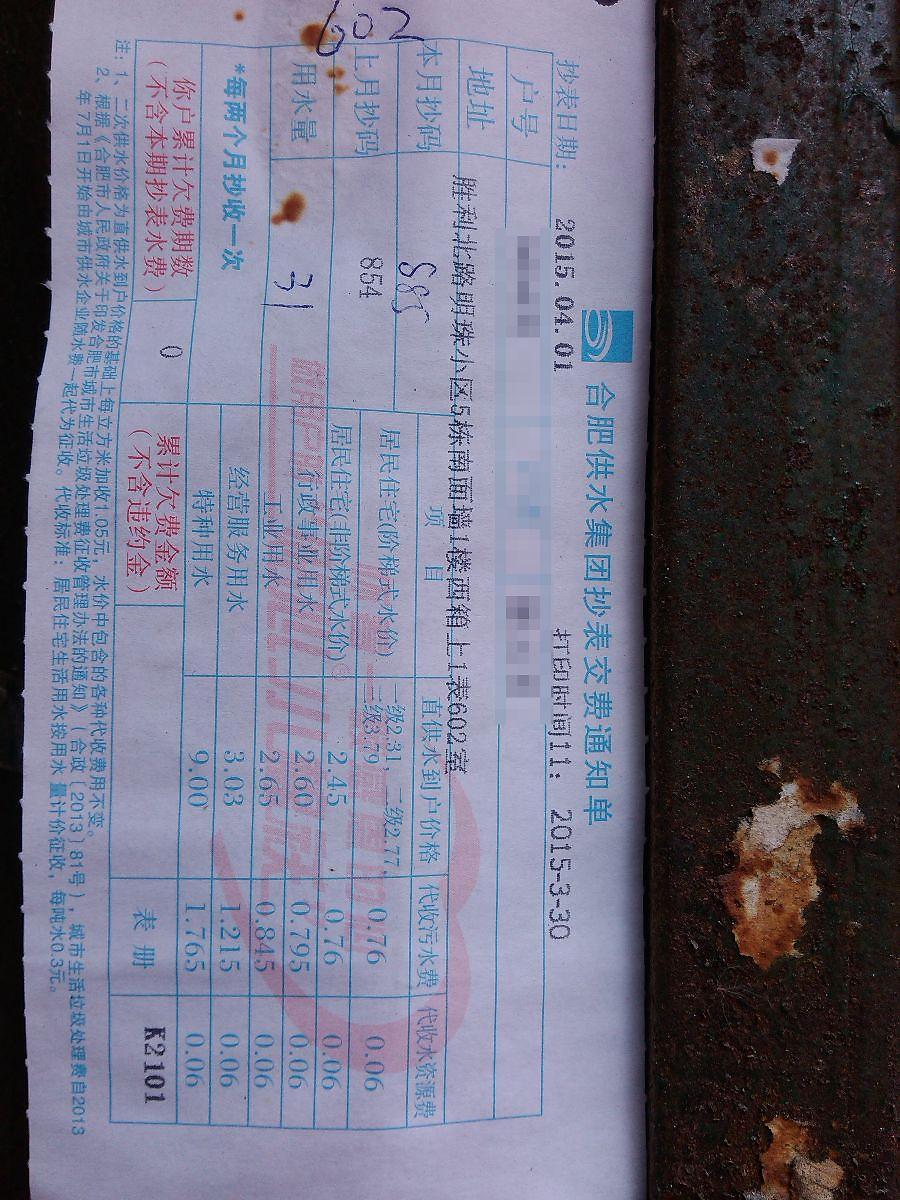 602
合肥供水集团抄表交费通知单
抄表日期: 2015.04.01 打印时间11: 2015-3-30
户号
地址 胜利北路明珠小区5栋南面墙1楼西箱上1表602室
本月抄码 885
上月抄码 854
用水量 31
*每两个月抄收一次
项目 直供水到户价格 代收污水费 代收水资源费
居民住宅(阶梯式水价) 一级2.31, 二级2.77, 三级3.79 0.76 0.06
居民住宅(非阶梯式水价) 2.45 0.76 0.06
行政事业用水 2.60 0.795 0.06
工业用水 2.65 0.845 0.06
经营服务用水 3.03 1.215 0.06
特种用水 9.00 1.765 0.06
你户累计欠费期数(不含本期抄表水费) 0 累计欠费金额(不含违约金) 表册 K2101
注: 1、二次供水价格为直供水到户价格的基础上每立方米加收1.05元, 水价中包含的各种代收费用不变。
2、根据《合肥市人民政府关于印发合肥市城市生活垃圾处理费征收管理办法的通知》(合政〔2013〕81号), 城市生活垃圾处理费自2013
年7月1日开始由城市供水企业随水费一起代为征收。代收标准: 居民住宅生活用水按用水量计价征收, 每吨水0.3元。